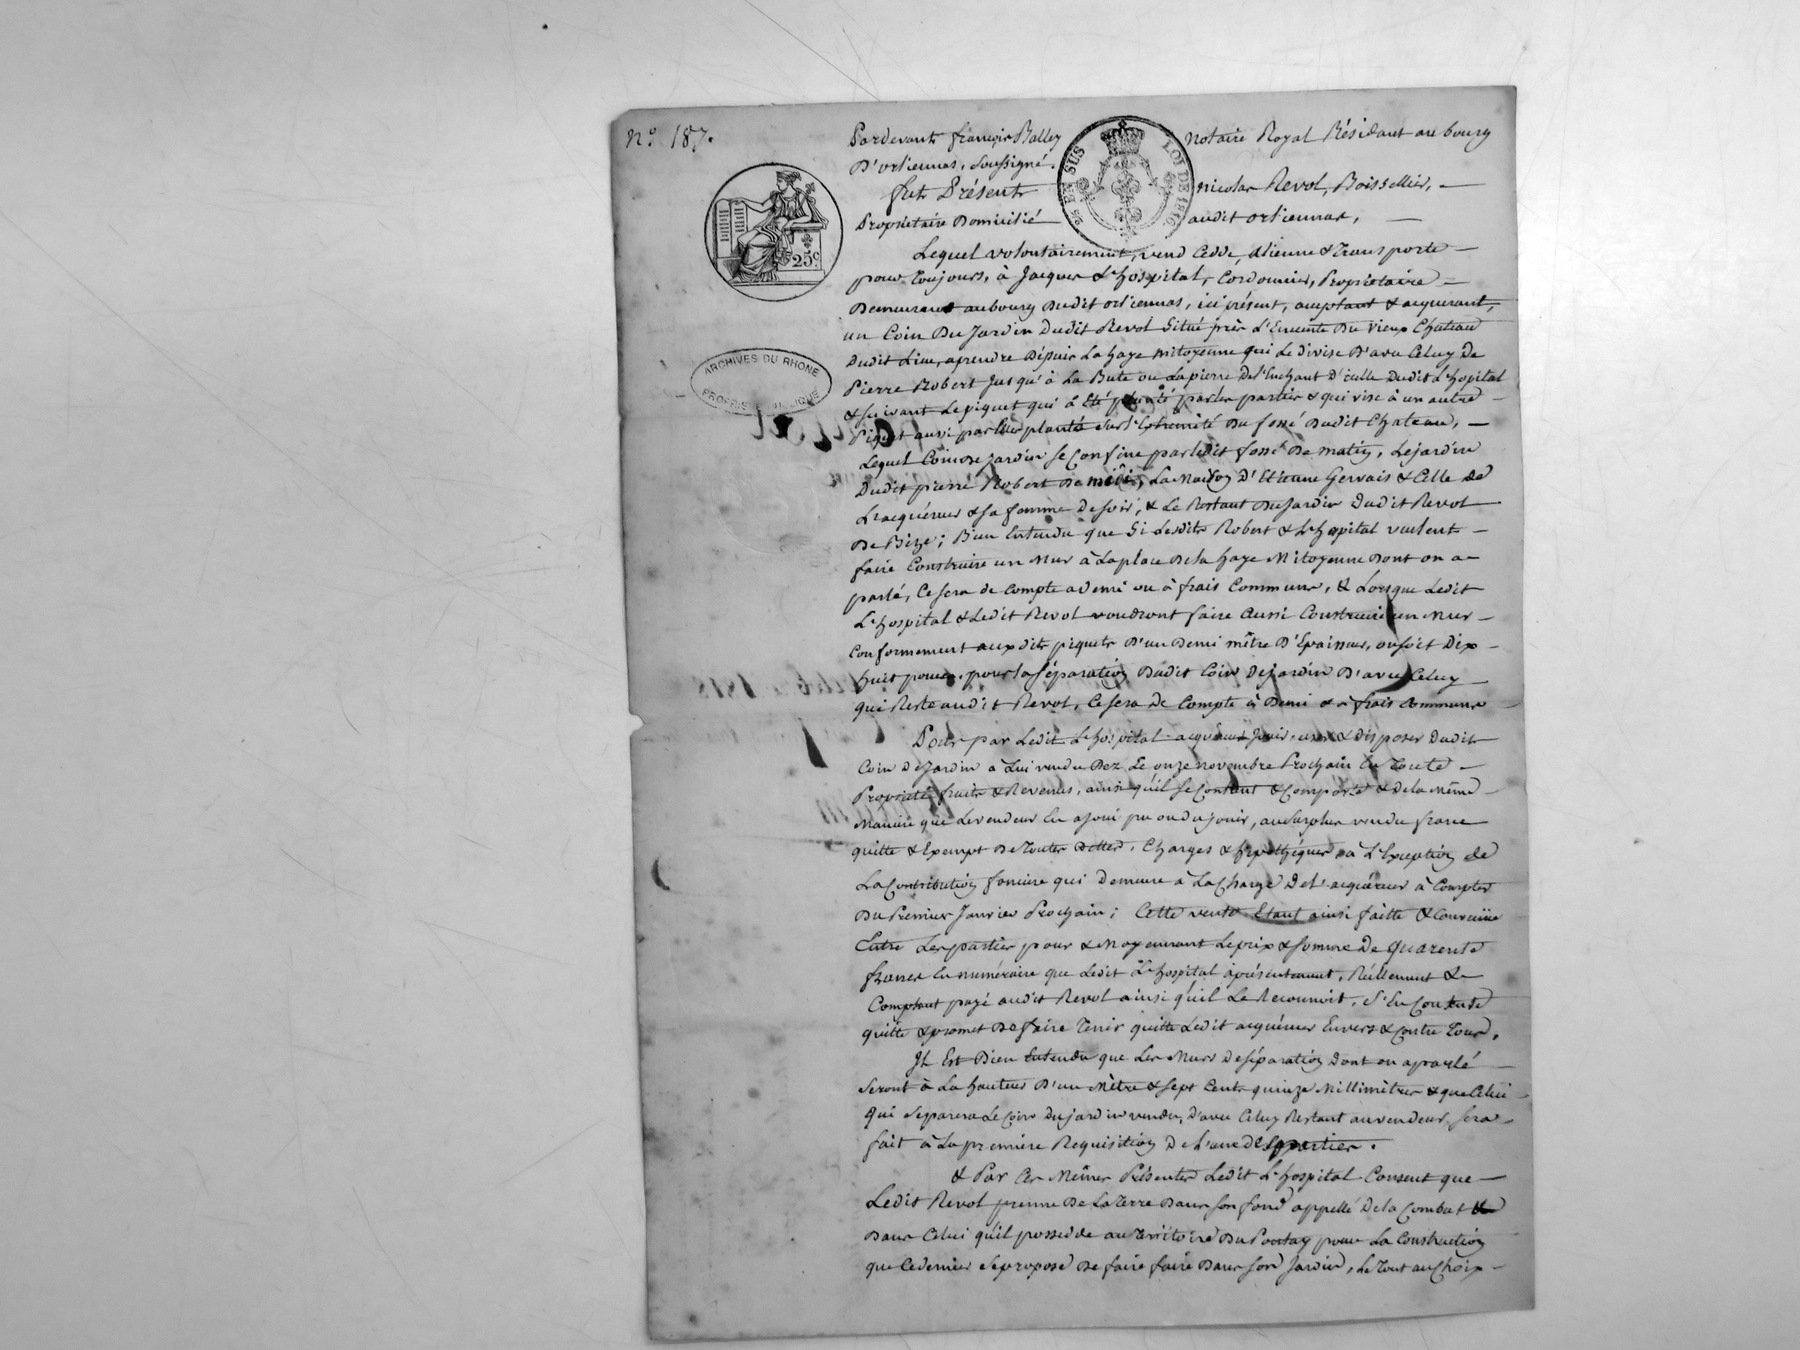 N.º 187.
Pardevant françois Balley Notaire Royal Résidant au bourg
D'orliennas, Soussigné.
fut Présent Nicolas Revol, Boissellier,
Propriétaire Domicilié audit orliennas,
25 EN SUS LOI DE 1816
25 C
Lequel volontairement, vend Cedde, Alienne & Transporte
pour Toujours, à Jacques L'hospital, Cordonnier, Propriétaire
Demeurant au bourg Dudit orliennas, ici présent, acceptant & acquerant,
un Coin Du Jardin Dudit Revol Situé près L'Enceinte Du Vieux Chateau
Dudit Lieu, aprendre Dépuis La haye mitoyenne qui Le divise D'avec Celuy De
ARCHIVES DU RHONE
PROPRIÉTÉ PUBLIQUE
Pierre Robert Jusqu'à La Bute ou La pierre De L'Euchant D'icelle Dudit L'hopital
& suivant Le piquet qui à Eté planté par Les parties & qui vise à un autre
Piquet aussi par Elles planté Sur L'Extremité Du fossé Dudit Chateau,
Lequel Coin de jardin se Confine par Ledit fossé De matin, Le jardin
Dudit pierre Robert De midi, La Maison D'Etienne Gervais & Celle de
L'acquéreur & sa femme de soir, & Le Restant Du Jardin Dudit Revol
De Bize; Bien Entendu que Si Lesdits Robert & L'hopital veulent
faire Construire un Mur à La place De la haye Mitoyenne Dont on a
parlé, Ce sera de Compte a Demi ou à frais Communs, & Lorsque Ledit
L'hospital & Ledit Revol voudront faire aussi Construire un Mur
Conformement aux dits piquets D'un Demi mètre D'Epaisseur, ou soit Dix
huit pouces, pour la séparation Dudit Coin de jardin D'avec Celuy
qui Reste audit Revol, Ce sera De Compte à Demi & à frais Communs
Pour par Ledit L'hospital acquéreur Jouir, user & disposer Dudit
Coin De Jardin à Lui vendu Dez Le onze novembre Prochain En Toute
Propriété fruits & Revenus, ainsi qu'il se Contient & Comporte & de la Même
Manière que Le vendeur En a joui pu ou du jouir, au Surplus vendu franc
quitte & Exempt De Toutes Dettes, Charges & hypothéques, à L'Exception de
La Contribution fonciere qui Demeure à La Charge De L'acquéreur à Compter
Du Premier Janvier Prochain; Cette vente Etant ainsi faitte & Convenüe
Entre Les parties pour & Moyennant Le prix & somme De quarente
francs En numéraire que Ledit L'hospital à présentement, Réellement &
Comptant payé audit Revol ainsi qu'il Le Reconnoit, S'En Contente
quitte & promet De faire Tenir quitte Ledit acquéreur Envers & Contre Tous.
Il Est Bien Entendu que Les Murs De séparation Dont on a parlé
Seront à La hauteur D'un Mètre & Sept Cents quinze Millimètres & que Celui
qui Separera Le Coin Du jardin vendu, D'avec Celuy Restant au vendeur, sera
fait à La première Requisition De L'une Des parties.
& Par Ces Mêmes Présentes Ledit L'hospital Consent que
Ledit Revol prenne De La Terre Dans son fond appellé De la Combat &
Dans Celui qu'il possede au Territoire Du Pontay pour La Construction
que Ce dernier Se propose De faire faire Dans son Jardin, Le Tout au Choix